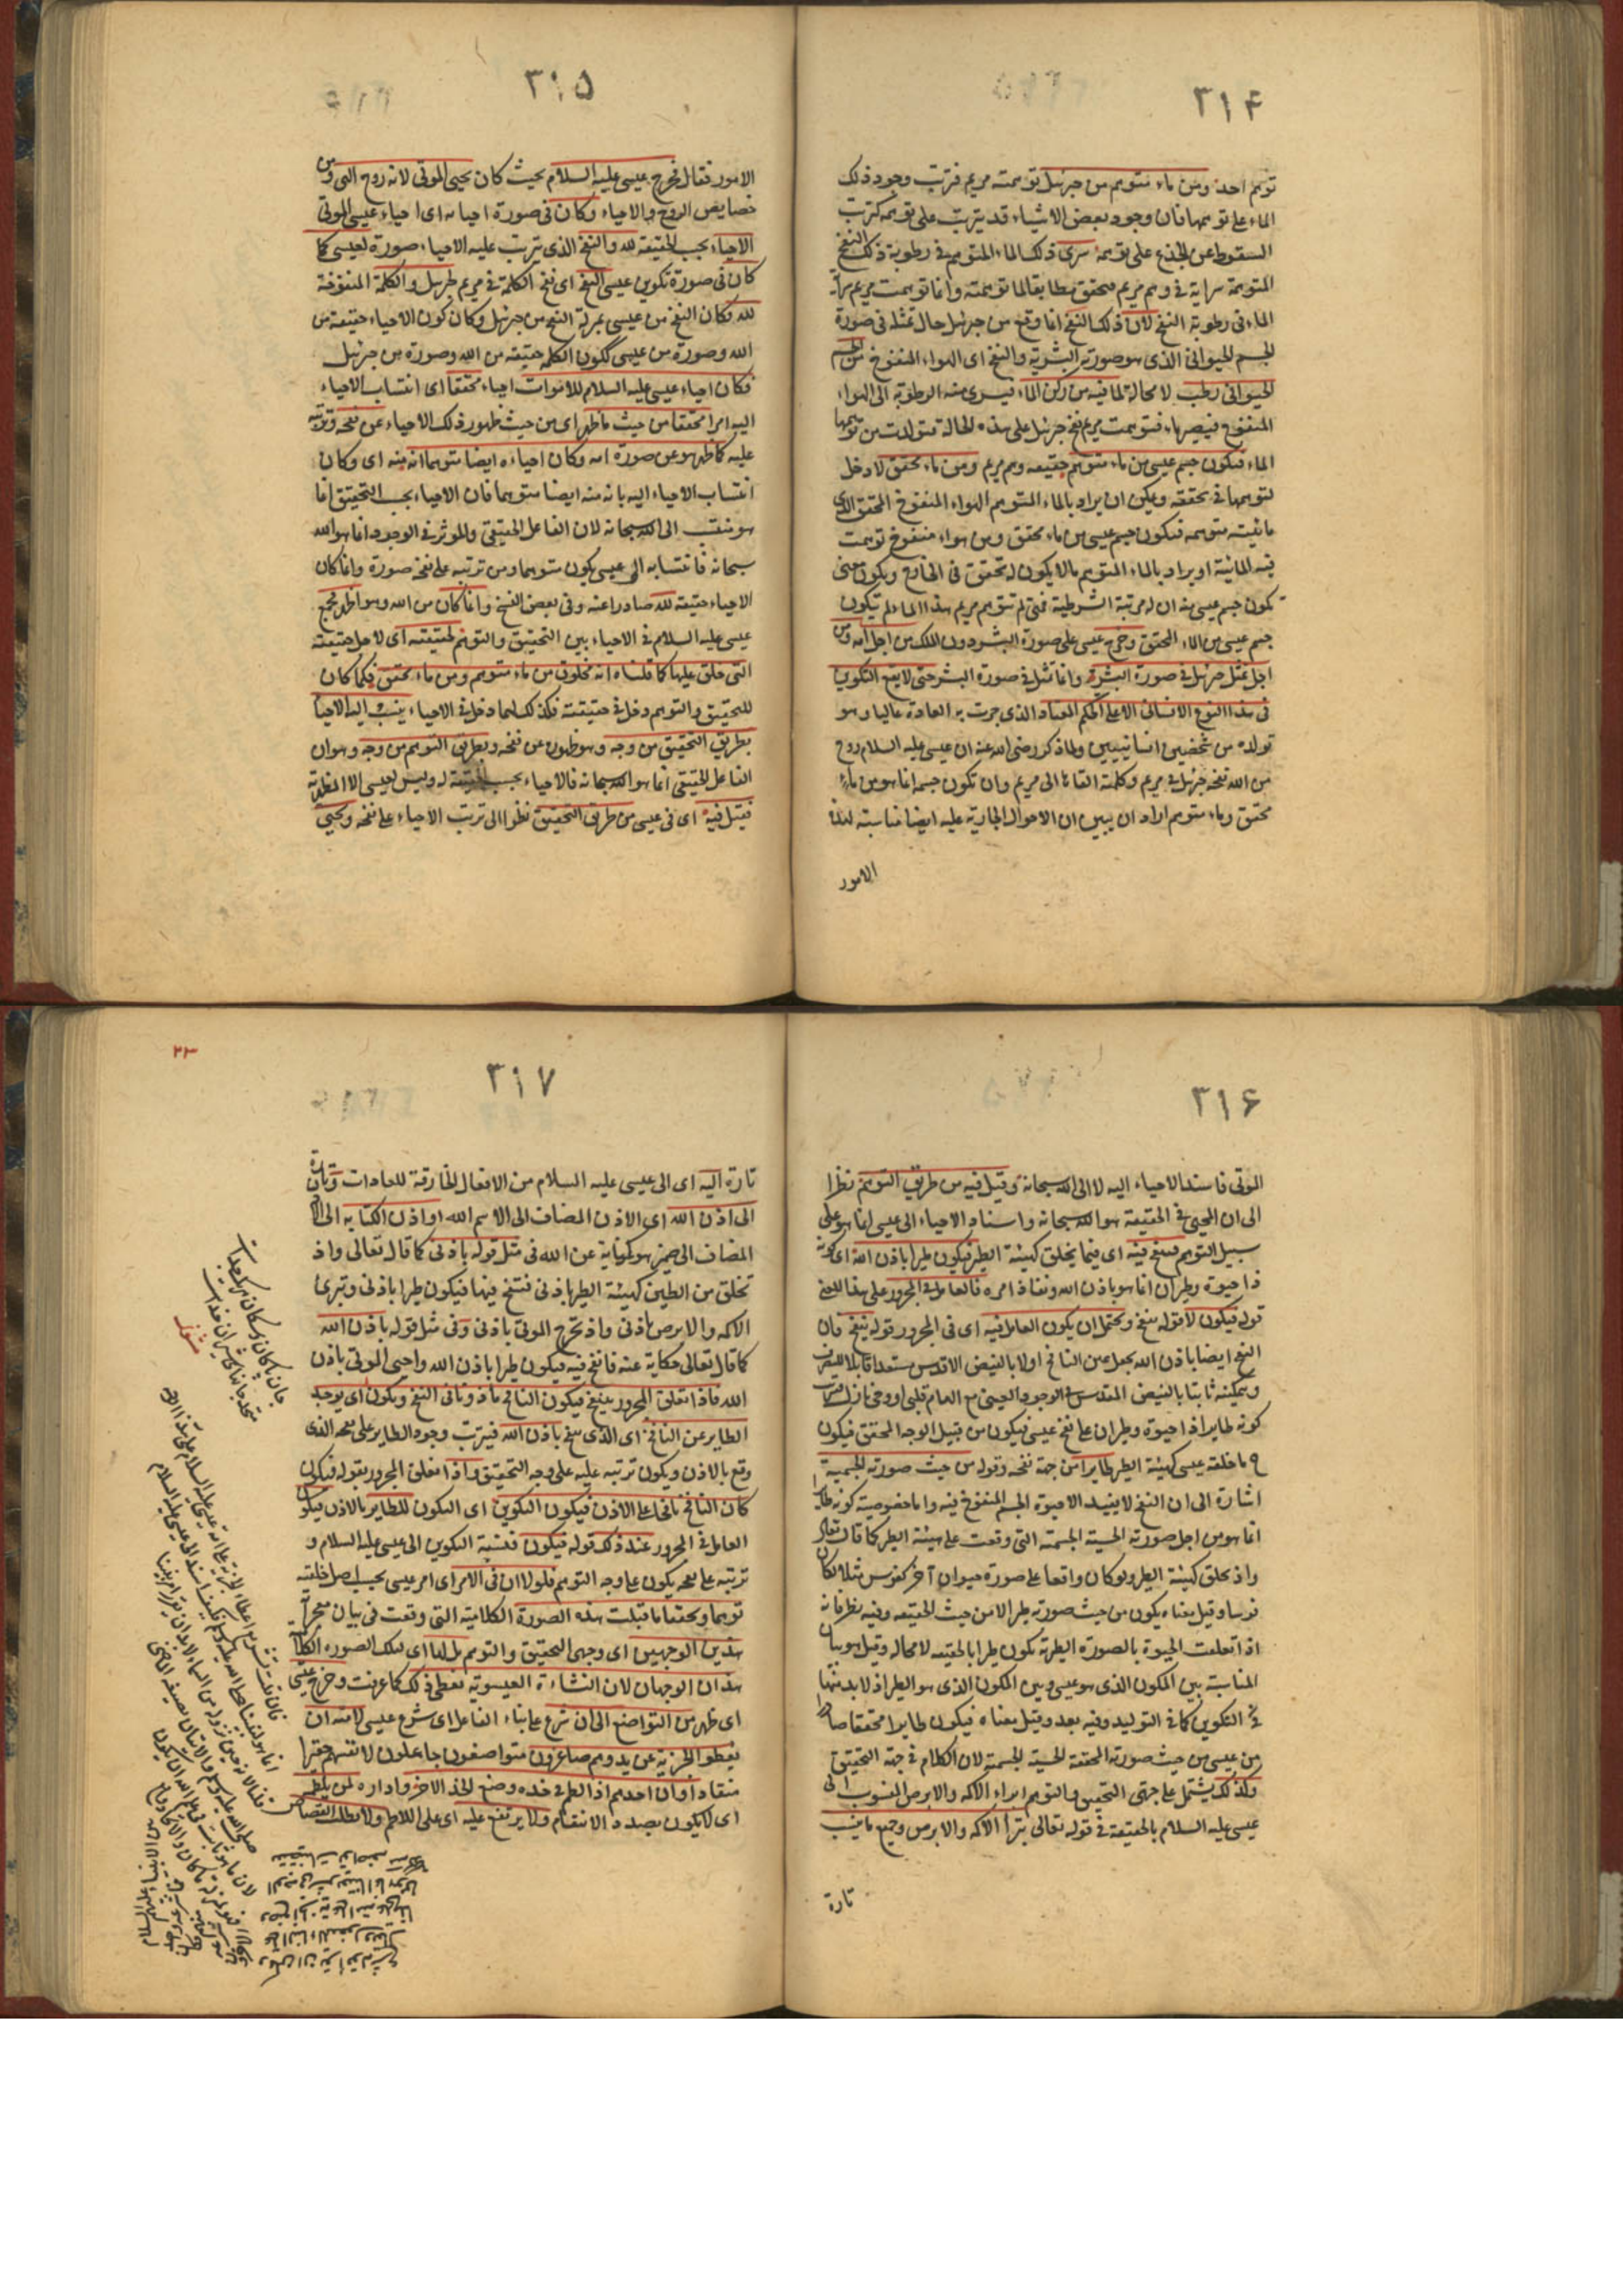 ٣١۴
توهم احد ومن ماء متوهم من جبرئيل توهمته مريم فترتب وجود ذلك
الماء على توهمها فان وجود بعض الاشياء قد يترتب على توهمه كترتب
السقوط عن الجذع على توهمه سرى ذلك الماء المتوهم في رطوبة ذلك النفخ
المتوهمة سراية في وهم مريم فتحقق مطابقا لما توهمته وانما توهمت مريم سراية
الماء في رطوبة النفخ لان ذلك النفخ انما وقع من جبرئيل حال تمثله في صورة
الجسم الحيواني الذي هو صورته البشرية والنفخ اى الهواء المنفوخ من الجسم
الحيواني رطب لا محالة لما فيه من ركن الماء فيسرى منه الرطوبة الى الهواء
المنفوخ فيصير ماء فتوهمت مريم نفخ جبرئيل على هذه الحالة فتولدت من توهمها
الماء فيكون جسم عيسى من ماء متوهم حقيقة وهم مريم ومن ماء محقق لا دخل
لتوهمها في تحققه ويمكن ان يراد بالماء المتوهم الهواء المنفوخ المحقق الذى
مائيته متوهمة فيكون جسم عيسى من ماء محقق ومن هواء منفوخ توهمت
فيه المائية او يراد بالماء المتوهم ما لا يكون له تحقق في الخارج ويكون معنى
تكون جسم عيسى منه ان له مرتبة الشرطية فمتى لم تتوهم مريم هذا الماء لم يتكون
جسم عيسى من الماء المحقق وخرج عيسى على صورة البشر دون الملك من اجل امه ومن
اجل تمثل جبرئيل في صورة البشر وانما تمثل في صورة البشر حتى لا يقع التكوين
في هذا النوع الانسانى الا على الحكم المعتاد الذى جرت به العادة غالبا وهو
تولده من شخصين انسانيين ولما ذكر رضى الله عنه ان عيسى عليه السلام روح
من الله نفخه جبرئيل في مريم وكلمته القاها الى مريم وان تكون جسمه انما هو من ماء
محقق وماء متوهم اراد ان يبين ان الاحوال الجارية عليه ايضا مناسبة لهذه
الامور
٣١۵
الامور فقال فخرج عيسى عليه السلام بحيث كان يحيى الموتى لانه روح الهى ومن
خصايص الروح والاحياء وكان في صورة احيائه اى احياء عيسى الموتى
الاحياء بحسب الحقيقة لله والنفخ الذى يترتب عليه الاحياء صورة لعيسى كما
كان في صورة تكوين عيسى النفخ اى نفخ الكلمة في مريم لجبرئيل والكلمة المنفوخة
لله وكان النفخ من عيسى بمنزلة النفخ من جبرئيل وكان كون الاحياء حقيقة من
الله وصورة من عيسى ككون الكلمة حقيقة من الله وصورة من جبرئيل
فكان احياء عيسى عليه السلام للاموات احياء محققا اى انتساب الاحياء
اليه امرا محققا من حيث ما ظهر اى من حيث ظهور ذلك الاحياء عن نفخه وترتبه
عليه كما ظهر هو عن صورة امه وكان احياءه ايضا متوهما انه منه اى وكان
انتساب الاحياء اليه بانه منه ايضا متوهما فان الاحياء بحسب التحقيق انما
هو منتسب الى الله سبحانه لان الفاعل الحقيقى والموثر في الوجود انما هو الله
سبحانه فانتسابه الى عيسى يكون متوهما ومن ترتبه على نفخه صورة وانما كان
الاحياء حقيقة لله صادرا عنه وفى بعض النسخ وانما كان من الله وهو اظهر فجمع
عيسى عليه السلام في الاحياء بين التحقيق والتوهم لحقيقته اى لاجل حقيقته
التى خلق عليها كما قلناه انه مخلوق من ماء متوهم ومن ماء محقق فكما كان
للتحقيق والتوهم دخل في حقيقته فكذلك لهما دخل في الاحياء ينسب اليه الاحياء
بطريق التحقيق من وجه وهو ظهوره عن نفخه وبطريق التوهم من وجه وهو ان
الفاعل الحقيقى انما هو الله سبحانه فالاحياء بحسب الحقيقة له وليس لعيسى الا المظهرية
فقيل فيه اى في عيسى من طريق التحقيق نظرا الى ترتب الاحياء على نفخه ويحيى
٣١۶
الموتى فاسند الاحياء اليه لا الى الله سبحانه وقيل فيه من طريق التوهم نظرا
الى ان المحيى في الحقيقة هو الله سبحانه واسناد الاحياء الى عيسى انما هو على
سبيل التوهم فتنفخ فيه اى فيما يخلق كهيئة الطير فيكون طيرا باذن الله اى كونه
ذا حيوة وطيران انما هو باذن الله ونفاذ امره فالعامل في المجرور على هذا المعنى
قوله فيكون لا قوله تنفخ ويحتمل ان يكون العامل فيه اى في المجرور قوله تنفخ فان
النفخ ايضا باذن الله بجعل عين النافخ اولا بالفيض الاقدس مستعدا قابلا للتصرف
وتمكينه ثانيا بالفيض المقدس في الوجود العينى مع الهام قلبى او وحى نازل فترتب
كونه طايرا ذا حيوة وطيران على نفخ عيسى فيكون من قبيل الوجه المحقق فيكون
ما خلقه عيسى كهيئة الطير طايرا من جهة نفخه وقوله من حيث صورته الجسمية
اشارة الى ان النفخ لا يفيد الا حيوة الجسم المنفوخ فيه واما خصوصية كونه طايرا
انما هو من اجل صورته الحسية الجسمية التى وقعت على هيئة الطير كما قال تعالى
واذ تخلق كهيئة الطير ولو كان واقعا على صورة حيوان آخر كفرس مثلا لكان
فرسا وقيل معناه يكون من حيث صورته طيرا لا من حيث الحقيقة وفيه نظر فانه
اذا تعلقت الحيوة بالصورة الطيرية يكون طيرا بالحقيقة لا محالة وقيل هو بيان
المناسبة بين المكون الذى هو عيسى وبين المكون الذى هو الطير اذ لا بد منها
في التكوين كما في التوليد وفيه بعد وقيل معناه فيكون طايرا محققا صادرا
من عيسى من حيث صورته المحققة الحسية الجسمية لان الكلام في جهة التحقيق
وكذلك يشتمل على جهتى التحقيق والتوهم ابراء الاكمه والابرص المنسوب الى
عيسى عليه السلام بالحقيقة في قوله تعالى تبرئ الاكمه والابرص وجميع ما ينسب
تارة
٣١٧
٢٣
تارة اليه اى الى عيسى عليه السلام من الافعال الخارقة للعادات وتارة
الى اذن الله اى الاذن المضاف الى الاسم الله او اذن الكناية الى الاذن
المضاف الى ضمير هو كناية عن الله في مثل قوله باذنى كما قال تعالى واذ
تخلق من الطين كهيئة الطير باذنى فتنفخ فيها فيكون طيرا باذنى وتبرئ
الاكمه والابرص باذنى واذ تخرج الموتى باذنى وفى مثل قوله باذن الله
كما قال تعالى حكاية عنه فانفخ فيه فيكون طيرا باذن الله واحيى الموتى باذن
الله فاذا تعلق المجرور بتنفخ فيكون النافخ ماذونا في النفخ ويكون اى يوجد
الطاير عن النافخ اى الذى نفخ باذن الله فيترتب وجود الطاير على نفخه الذى
وقع بالاذن ويكون ترتبه عليه على وجه التحقيق واذا تعلق المجرور بقوله فيكون
كان النافخ نافخا لا على الاذن فيكون التكوين اى التكون للطاير بالاذن فيكون
العامل في المجرور عند ذلك قوله فيكون فنسبة التكوين الى عيسى عليه السلام و
ترتبه على نفخه يكون على وجه التوهم فلولا ان في الامر اى امر عيسى بحسب اصل خلقته
توهما وتحققا ما قبلت هذه الصورة الكلامية التى وقعت في بيان معجزاته
هذين الوجهين اى وجهى التحقيق والتوهم بل لها اى لتلك الصورة الكلامية
هذان الوجهان لان النشاءة العيسوية تعطى ذلك كما عرفت وخرج عيسى
اى ظهر من التواضع الى ان شرع على بناء الفاعل اى شرع عيسى لامته ان
يعطوا الجزية عن يد وهم صاغرون متواضعون جاعلون لانفسهم حقيرا
منقادا وان احدهم اذا لطم في خده وضع الخد الاخر واداره لمن يلطمه
اى لا يكون بصدد الانتقام ولا يرتفع عليه اى على اللاطم ولا يطلب القصاص